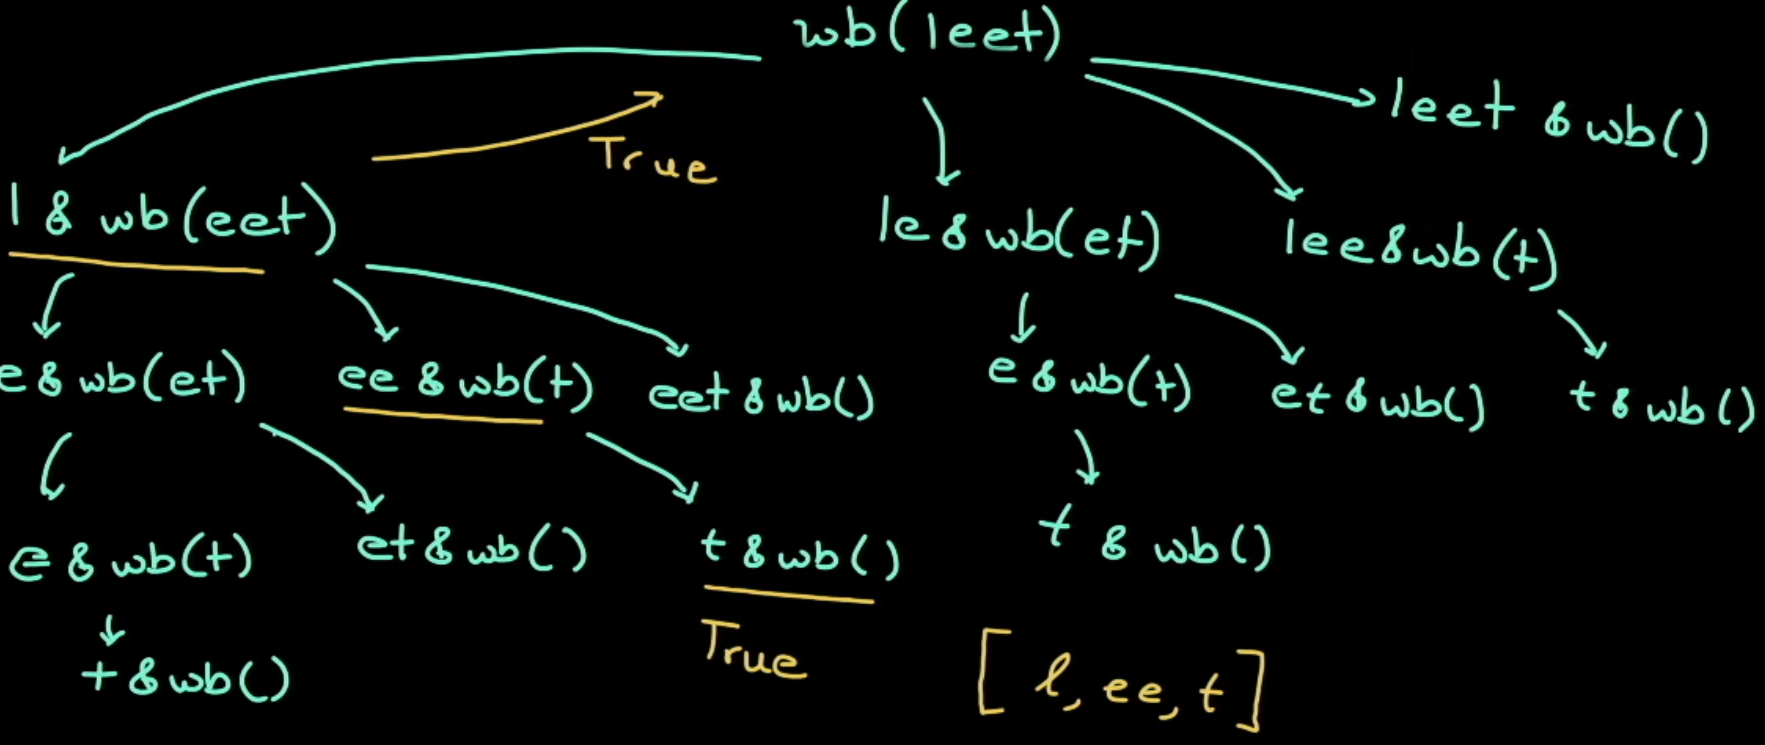 wb(leet)
leet & wb()
True
l & wb(eet)
le & wb(et)
lee & wb(t)
e & wb(et)
ee & wb(t)
eet & wb()
e & wb(t)
et & wb()
t & wb()
e & wb(t)
et & wb()
t & wb()
t & wb()
True
t & wb()
[l, ee, t]